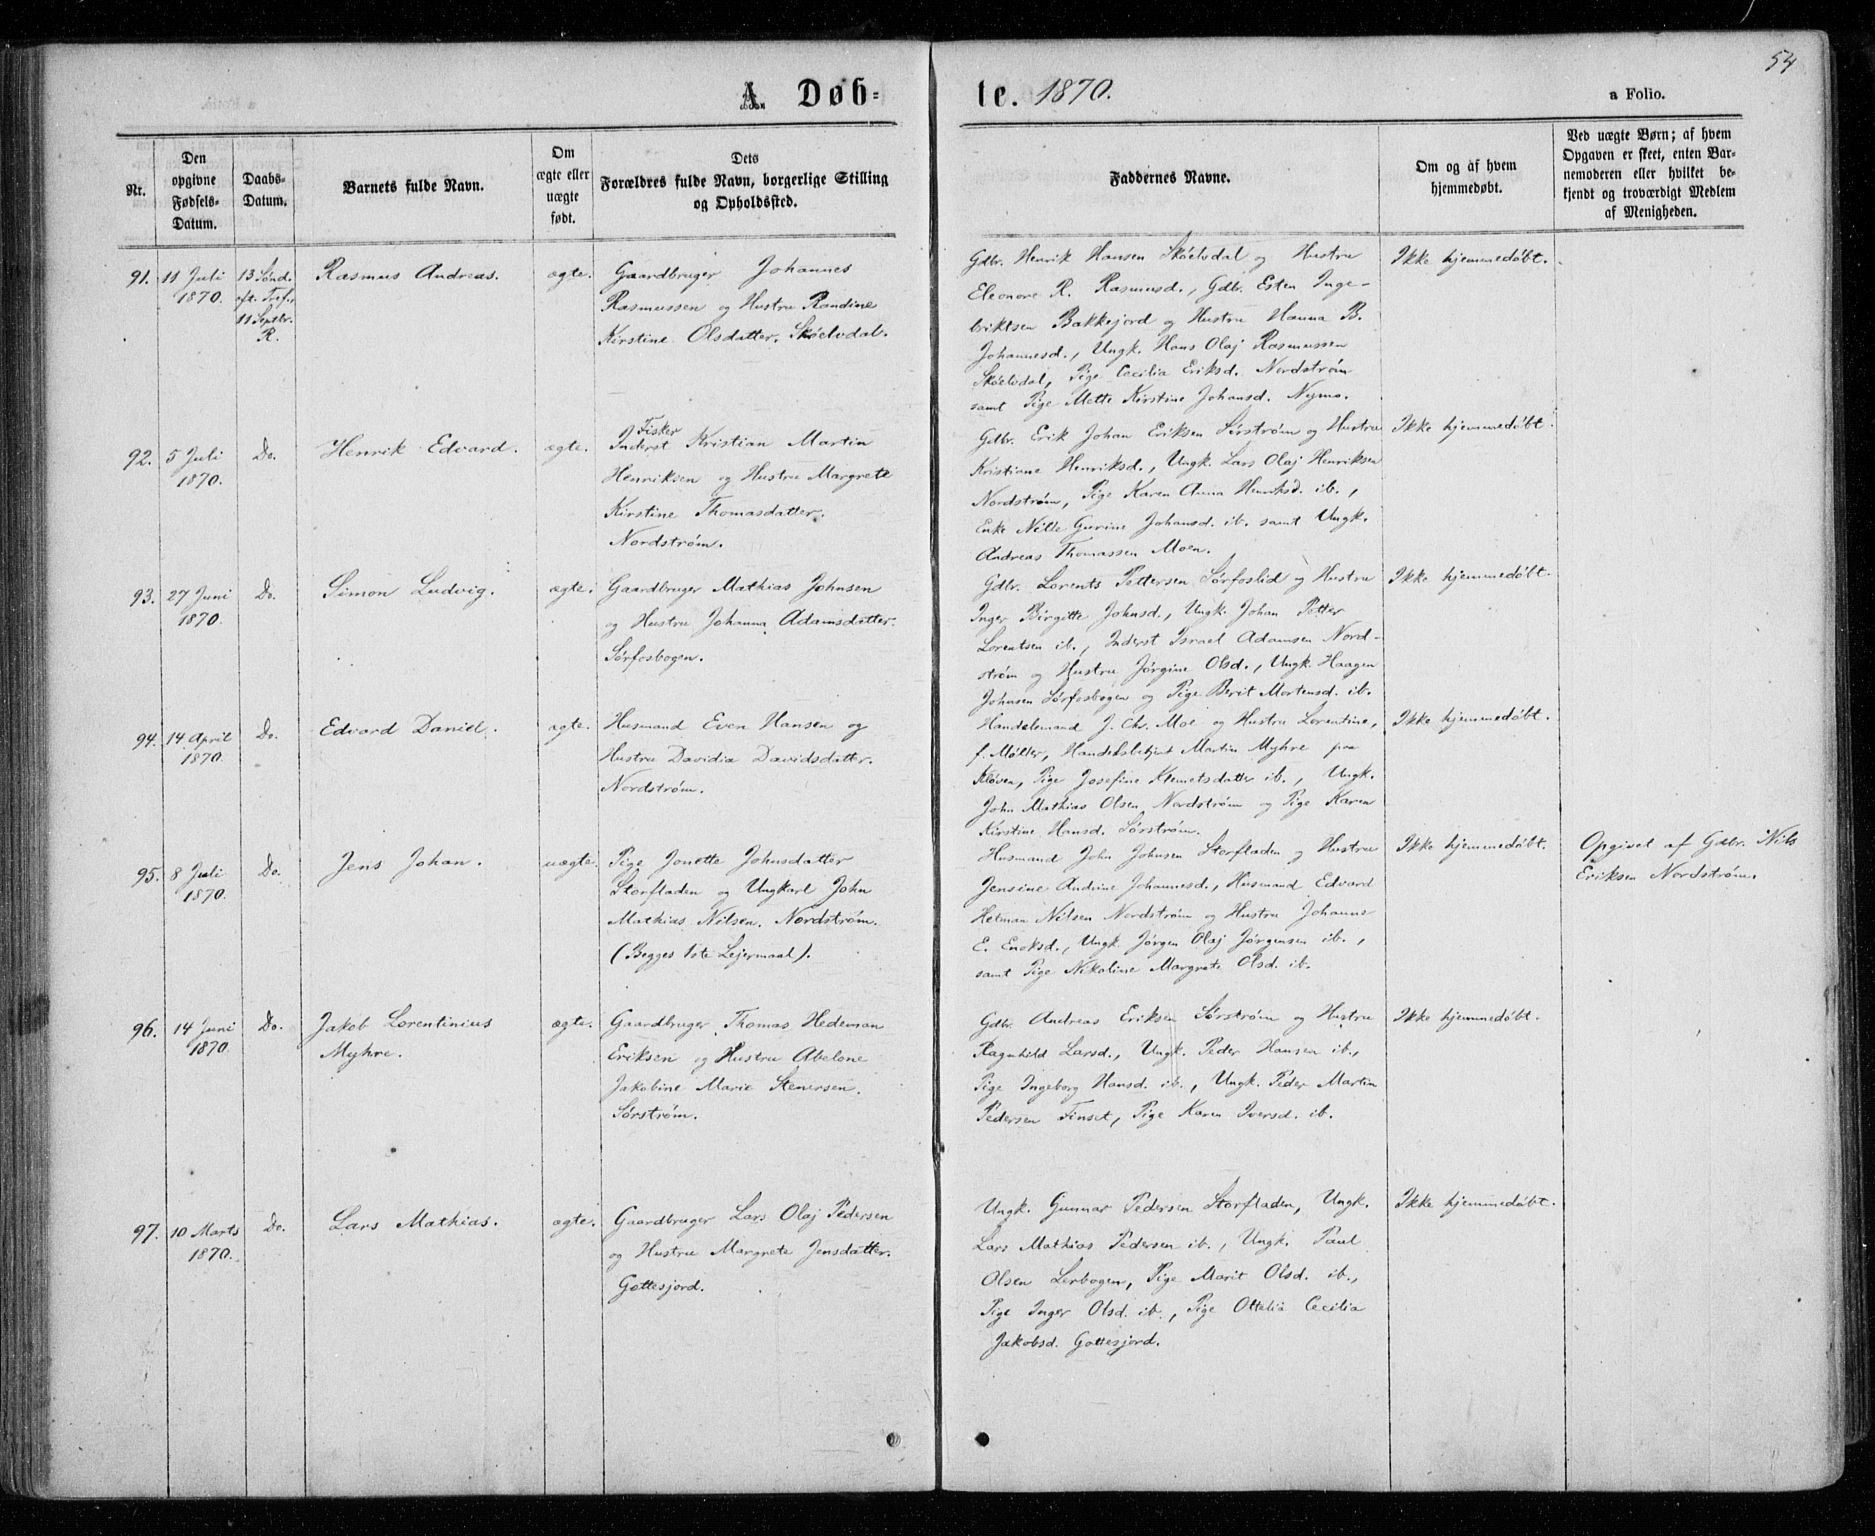 54
A. Døb=
te. 1870.
a Folio.
Nr.
Den
opgivne
Fødsels-
Datum.
Daabs-
Datum.
Barnets fulde Navn.
Om
ægte eller
uægte
født.
Dets
Forældres fulde Navn, borgerlige Stilling
og Opholdssted.
Faddernes Navne.
Om og af hvem
hjemmedøbt.
Ved uægte Børn; af hvem
Opgaven er skeet, enten Bar-
nemoderen eller hvilket be-
kjendt og troværdigt Medlem
af Menigheden.
91.
11 Juli
1870.
13 Sönd.
eft. Tref.,
11 Septbr.
R.
Rasmus Andreas.
ægte.
Gaardbruger Johannes
Rasmussen og Hustru Randine
Kirstine Olsdatter. Skóelvdal.
Gdbr. Henrik Hansen Skóelvdal og Hustru
Eleonore R. Rasmusd., Gdbr. Esten Inge-
briktsen Bakkejord og Hustru Hanna B.
Johannesd., Ungk. Hans Olaj Rasmussen
Skóelvdal, Pige Cecilia Eriksd. Nordstróm
samt Pige Mette Kirstine Johansd. Nymo.
Ikke hjemmedóbt.
92.
5 Juli
1870.
Do.
Henrik Edvard.
ægte.
Fisker
Inderst Kristian Martin
Henriksen og Hustru Margrete
Kirstine Thomasdatter.
Nordstróm.
Gdbr. Erik Johan Eriksen Sórstróm og Hustru
Kristiane Henriksd., Ungk. Lars Olaj Henriksen
Nordstróm, Pige Karen Anna Henriksd. ib.,
Enke Nille Gurine Johansd. ib. samt Ungk.
Andreas Thomassen Moen.
Ikke hjemmedóbt.
93.
27 Juni
1870.
Do.
Simon Ludvig.
ægte.
Gaardbruger Mathias Johnsen
og Hustru Johanna Adamsdatter.
Sórfosbogen.
Gdbr. Lorents Pettersen Sórfoslid og Hustru
Inger Birgitte Johnsd., Ungk. Johan Petter
Lorentsen ib., Inderst Israel Adamsen Nord-
stróm og Hustru Jórgine Olsd., Ungk. Haagen
Johnsen Sórfosbogen og Pige Berit Mortensd. ib.
Ikke hjemmedóbt.
94.
14 April
1870.
Do.
Edvard Daniel.
ægte.
Husmand Even Hansen og
Hustru Davidia Davidsdatter.
Nordstróm.
Handelsmand J. Chr. Moe og Hustru Lorentine,
f. Móller, Handelsbetjent Martin Myhre paa
Klóven, Pige Josefine Klemetsdatter ib., Ungk.
John Mathias Olsen Nordstróm og Pige Karen
Kirstine Hansd. Sórstróm.
Ikke hjemmedóbt.
95.
8 Juli
1870.
Do.
Jens Johan.
uægte.
Pige Jonette Johnsdatter
Storfladen og Ungkarl John
Mathias Nilsen. Nordstróm.
(Begges 1ste Lejermaal).
Husmand John Johnsen Storfladen og Hustru
Jensine Andrine Johannesd., Husmand Edvard
Hetman Nilsen Nordstróm og Hustru Johanna
E. Enoksd., Ungk. Jórgen Olaj Jórgensen ib.,
samt Pige Nikoline Margrete Olsd. ib.
Ikke hjemmedóbt.
Opgivet af Gdbr. Nils
Eriksen Nordstróm.
96.
14 Juni
1870
Do.
Jakob Lorentinius
Myhre.
ægte.
Gaardbruger Thomas Hedeman
Eriksen og Hustru Abelone
Jakobine Marie Stenersen.
Sórstróm.
Gdbr. Andreas Eriksen Sórstróm og Hustru
Ragnhild Larsd., Ungk. Peder Hansen ib.,
Pige Ingeborg Hansd. ib., Ungk. Peder Martin
Pedersen Finset, Pige Karen Iversd. ib.
Ikke hjemmedóbt.
97.
10 Marts
1870.
Do.
Lars Mathias.
ægte.
Gaardbruger Lars Olaj Pedersen
og Hustru Margrete Jensdatter.
Gottesjord.
Ungk. Gunnar Pedersen Storfladen, Ungk.
Lars Mathias Pedersen ib., Ungk. Paul
Olsen Lerbogen, Pige Marit Olsd. ib.,
Pige Inger Olsd. ib., Pige Ottelia Cecilia
Jakobsd. Gottesjord.
Ikke hjemmedóbt.